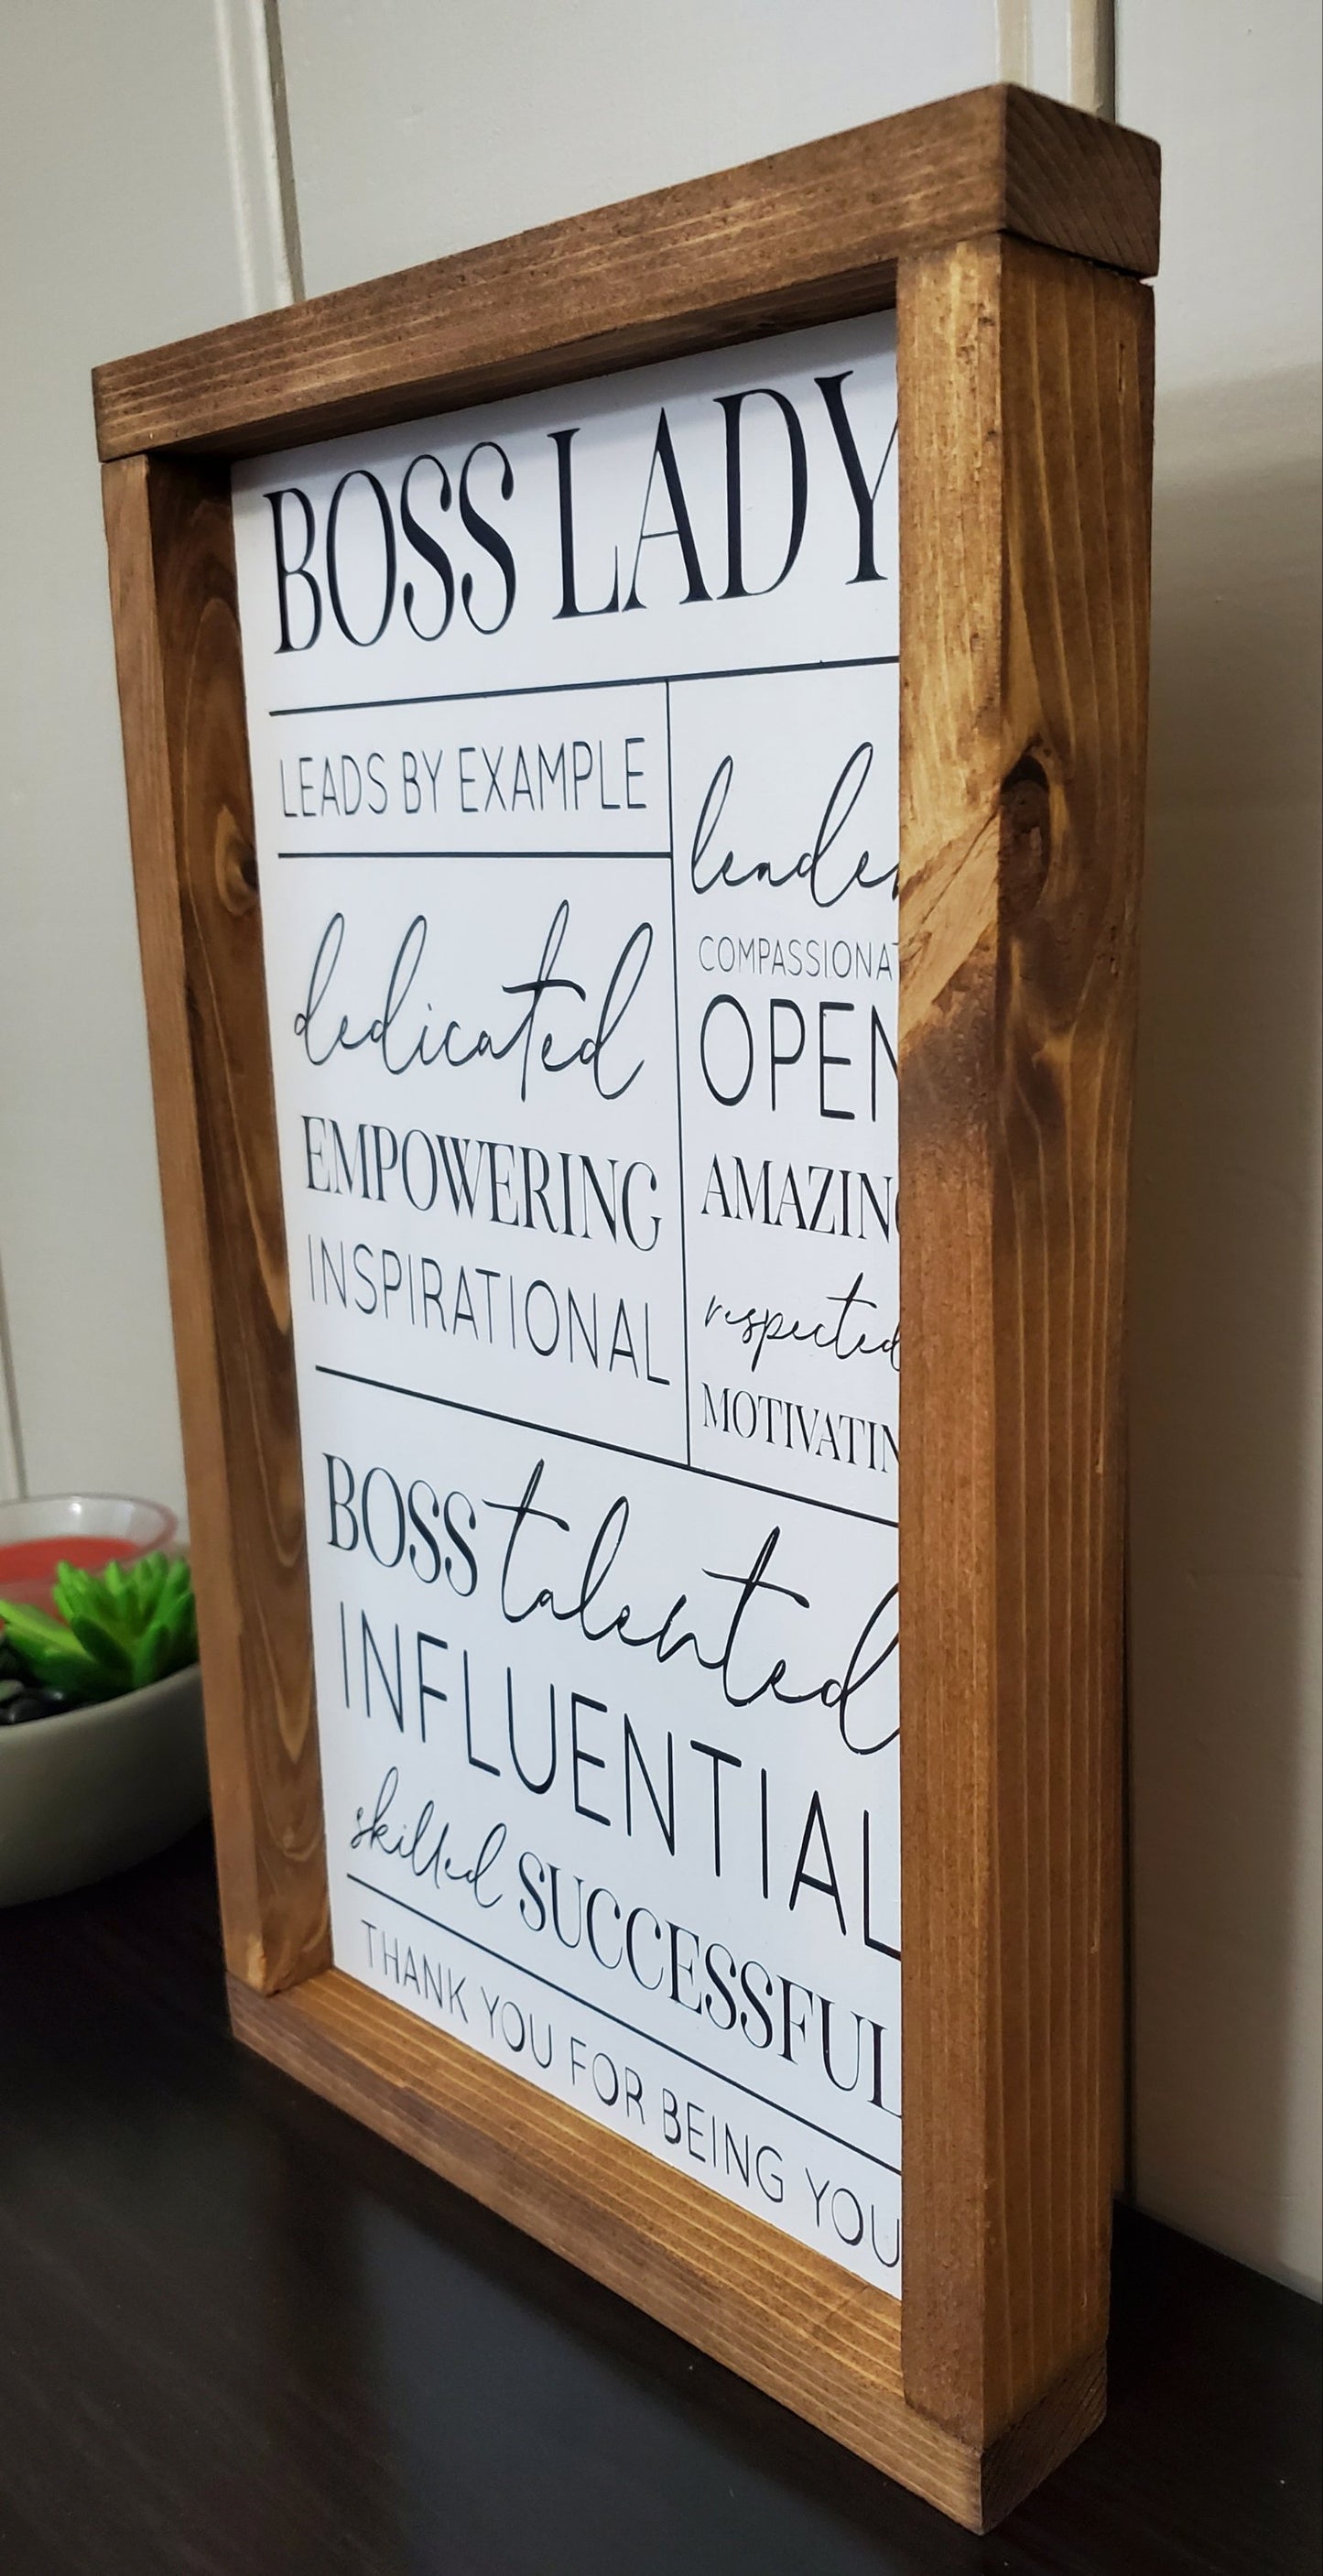 BOSS LADY
LEADS BY EXAMPLE
dedicated
EMPOWERING
INSPIRATIONAL
leader
COMPASSIONAT
OPEN
AMAZING
respected
MOTIVATIN
BOSS talented
INFLUENTIAL
skilled SUCCESSFUL
THANK YOU FOR BEING YOU